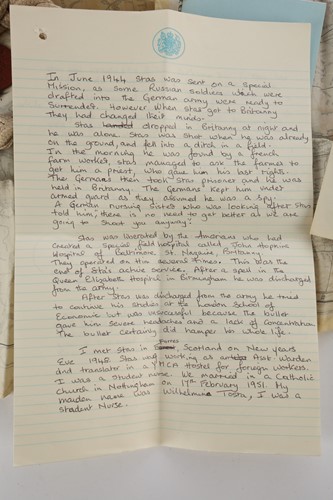 In June 1944 Stas was sent on a special
Mission, as some Russian soldiers which were
drafted into the German army were ready to
Surrender. However when Stas got to Britanny
They had changed their minds.
Stas landed dropped in Britanny at night and
he was alone. Stas was shot when he was already
on the ground, and fell into a ditch in a field.
In the morning he was found by a french
farm worker, Stas managed to ask the farmer to
get him a priest, who gave him his last rights.
The Germans then took Stas prisoner and he was
held in Britanny. The Germans kept him under
armed guard as they assumed he was a spy.
A German nursing Sister who was looking after Stas
told him, there is no need to get better as we are
going to shoot you anyway.
Stas was liberated by the Americans who had
created a special field hospital called John Hopkins
Hospital of Baltimore, St. Nazaire, Brittany.
They operated on him several times. This was the
end of Stas's active service. After a spell in the
Queen Elizabeth Hospital in Birmingham he was discharged
from the army.
After Stas was discharged from the army he tried
to continue his studies at the London School of
Economic but was unsuccessful because the bullet
gave him severe headaches and a lack of concentration.
The bullet certainly did hamper his whole life.
I met Stas in Dumfries Scotland on New Years
Eve 1948. Stas was working as Asst. Warden
and translator in a YMCA Hostel for foreign workers.
I was a student nurse. We married in a Catholic
church in Nottingham on 17th February 1951. My
maiden name was Wilhelmina, I was a
student Nurse.